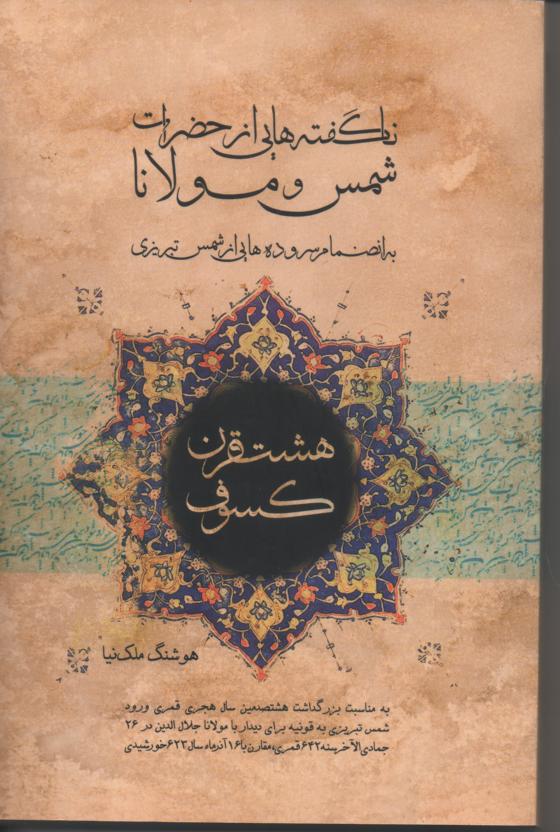 ناگفته هایی از حضرات
شمس و مولانا
به انضمام سروده هایی از شمس تبریزی
هشت قرن
کسوف
هوشنگ ملک نیا
به مناسبت بزرگداشت هشتصدمین سال هجری قمری ورود
شمس تبریزی به قونیه برای دیدار با مولانا جلال الدین در ۲۶
جمادی الآخر سنه ۶۴۲ قمری، مقارن با ۱۶ آذرماه سال ۶۲۳ خورشیدی